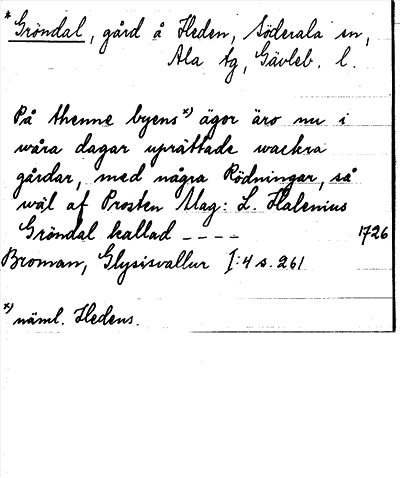 * Gröndal, gård å Heden, Söderala sn,
Ala tg, Gävleb. l.
På thenne byens x) ägor äro nu i
wåra dagar uprättade wackra
gårdar, med några Rödningar, så
wäl af Prosten Mag: L. Halenius
Gröndal kallad - - - - 1726
Broman, Glysisvallur I:4 s. 261
x) näml. Hedens.